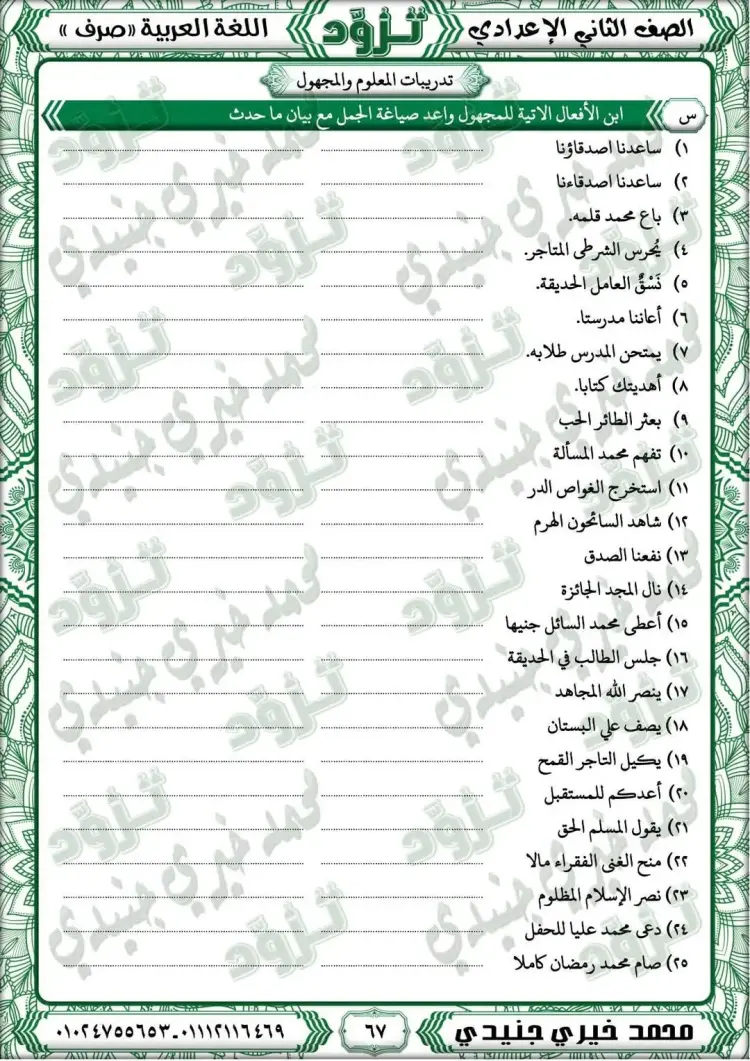 الصف الثاني الإعدادي
تزوّد
اللغة العربية «صرف»
تدريبات المعلوم والمجهول
س
ابن الأفعال الاتية للمجهول واعد صياغة الجمل مع بيان ما حدث
١) ساعدنا اصدقاؤنا
٢) ساعدنا اصدقاءنا
٣) باع محمد قلمه.
٤) يُحرس الشرطى المتاجر.
٥) نَسْقٌ العامل الحديقة.
٦) أعاننا مدرستا.
٧) يمتحن المدرس طلابه.
٨) أهديتك كتابا.
٩) بعثر الطائر الحب
١٠) تفهم محمد المسألة
١١) استخرج الغواص الدر
١٢) شاهد السائحون الهرم
١٣) نفعنا الصدق
١٤) نال المجد الجائزة
١٥) أعطى محمد السائل جنيها
١٦) جلس الطالب في الحديقة
١٧) ينصر الله المجاهد
١٨) يصف علي البستان
١٩) يكيل التاجر القمح
٢٠) أعدكم للمستقبل
٢١) يقول المسلم الحق
٢٢) منح الغنى الفقراء مالا
٢٣) نصر الإسلام المظلوم
٢٤) دعى محمد عليا للحفل
٢٥) صام محمد رمضان كاملا
محمد خيري جنيدي
٦٧
٠١١١٢١١٦٤٦٩-٠١٠٢٤٧٥٥٦٥٣